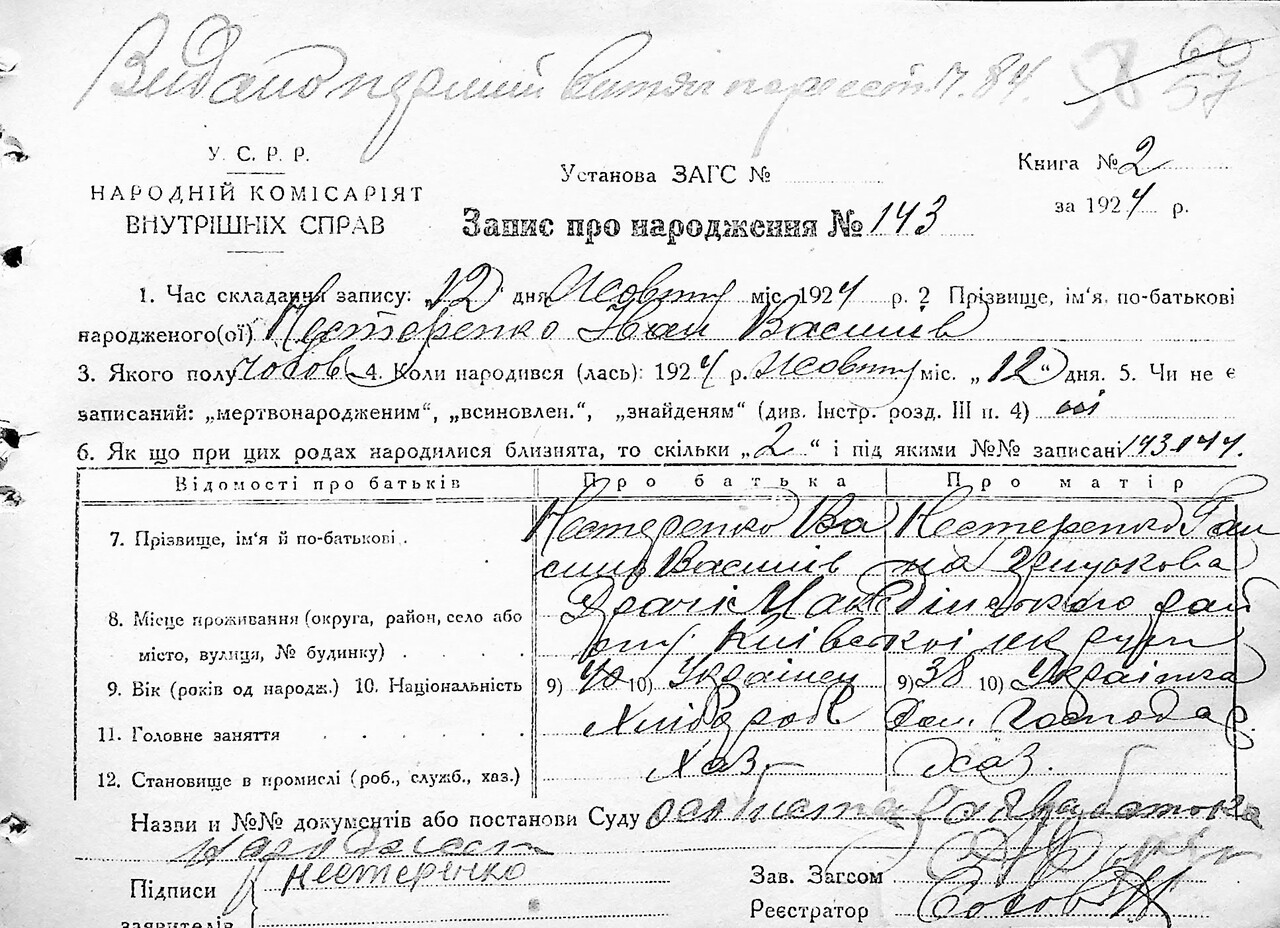 Видано п 84.
58 60
57
У. С. Р. Р.
НАРОДНІЙ КОМІСАРІЯТ
ВНУТРІШНІХ СПРАВ
Установа ЗАГС №
Книга № 2
за 1924 р.
Запис про народження № 143
1. Час складання запису: 12 дня Жовтня міс 1924 р. 2 Прізвище, ім'я, по-батькові
народженого(ої) Нестеренко Іван Василів
3. Якого полу чолов 4. Коли народився (лась): 1924 р. Жовтня міс. „12" дня. 5. Чи не є
записаний: „мертвонародженим", „всиновлен.", „знайденям" (див. Інстр. розд. III п. 4) ні
6. Як що при цих родах народилися близнята, то скільки „2" і під якими №№ записані 143-144.
Відомості про батьків Про батька Про матір
7. Прізвище, ім'я й по-батькові. Нестеренко Ва Нестеренко Ган
силь Василів на
8. Місце проживання (округа, район, село або Драчі рай
місто, вулиця, № будинку) . . . ону Київської округи
9. Вік (років од народж.) 10. Національність 9) 40 10) Українец 9) 38 10) Українка
11. Головне заняття . . . . . Хлібороб Дом. Господар
12. Становище в промислі (роб., служб., хаз.) Хаз. Хаз.
Назви и №№ документів або постанови Суду
Підписи Нестеренко
заявителів
Зав. Загсом
Реєстратор